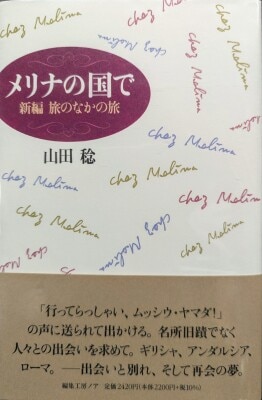 chez Melina
chez Melina
chez Melina
chez Melina
メリナの国で
新編 旅のなかの旅
山田 稔
chez Melina
chez Melina
chez Melina
chez Melina
chez Melina
chez Melina
chez Melina
chez Melina
chez Melina
chez Melina
chez Melina
chez Melina
「行ってらっしゃい、ムッシウ・ヤマダ！」
の声に送られて出かける。名所旧蹟でなく
人々との出会いを求めて。ギリシャ、アンダルシア、
ローマ。――出会いと別れ、そして再会の夢。
編集工房ノア 定価2420円(本体2200円+税10%)